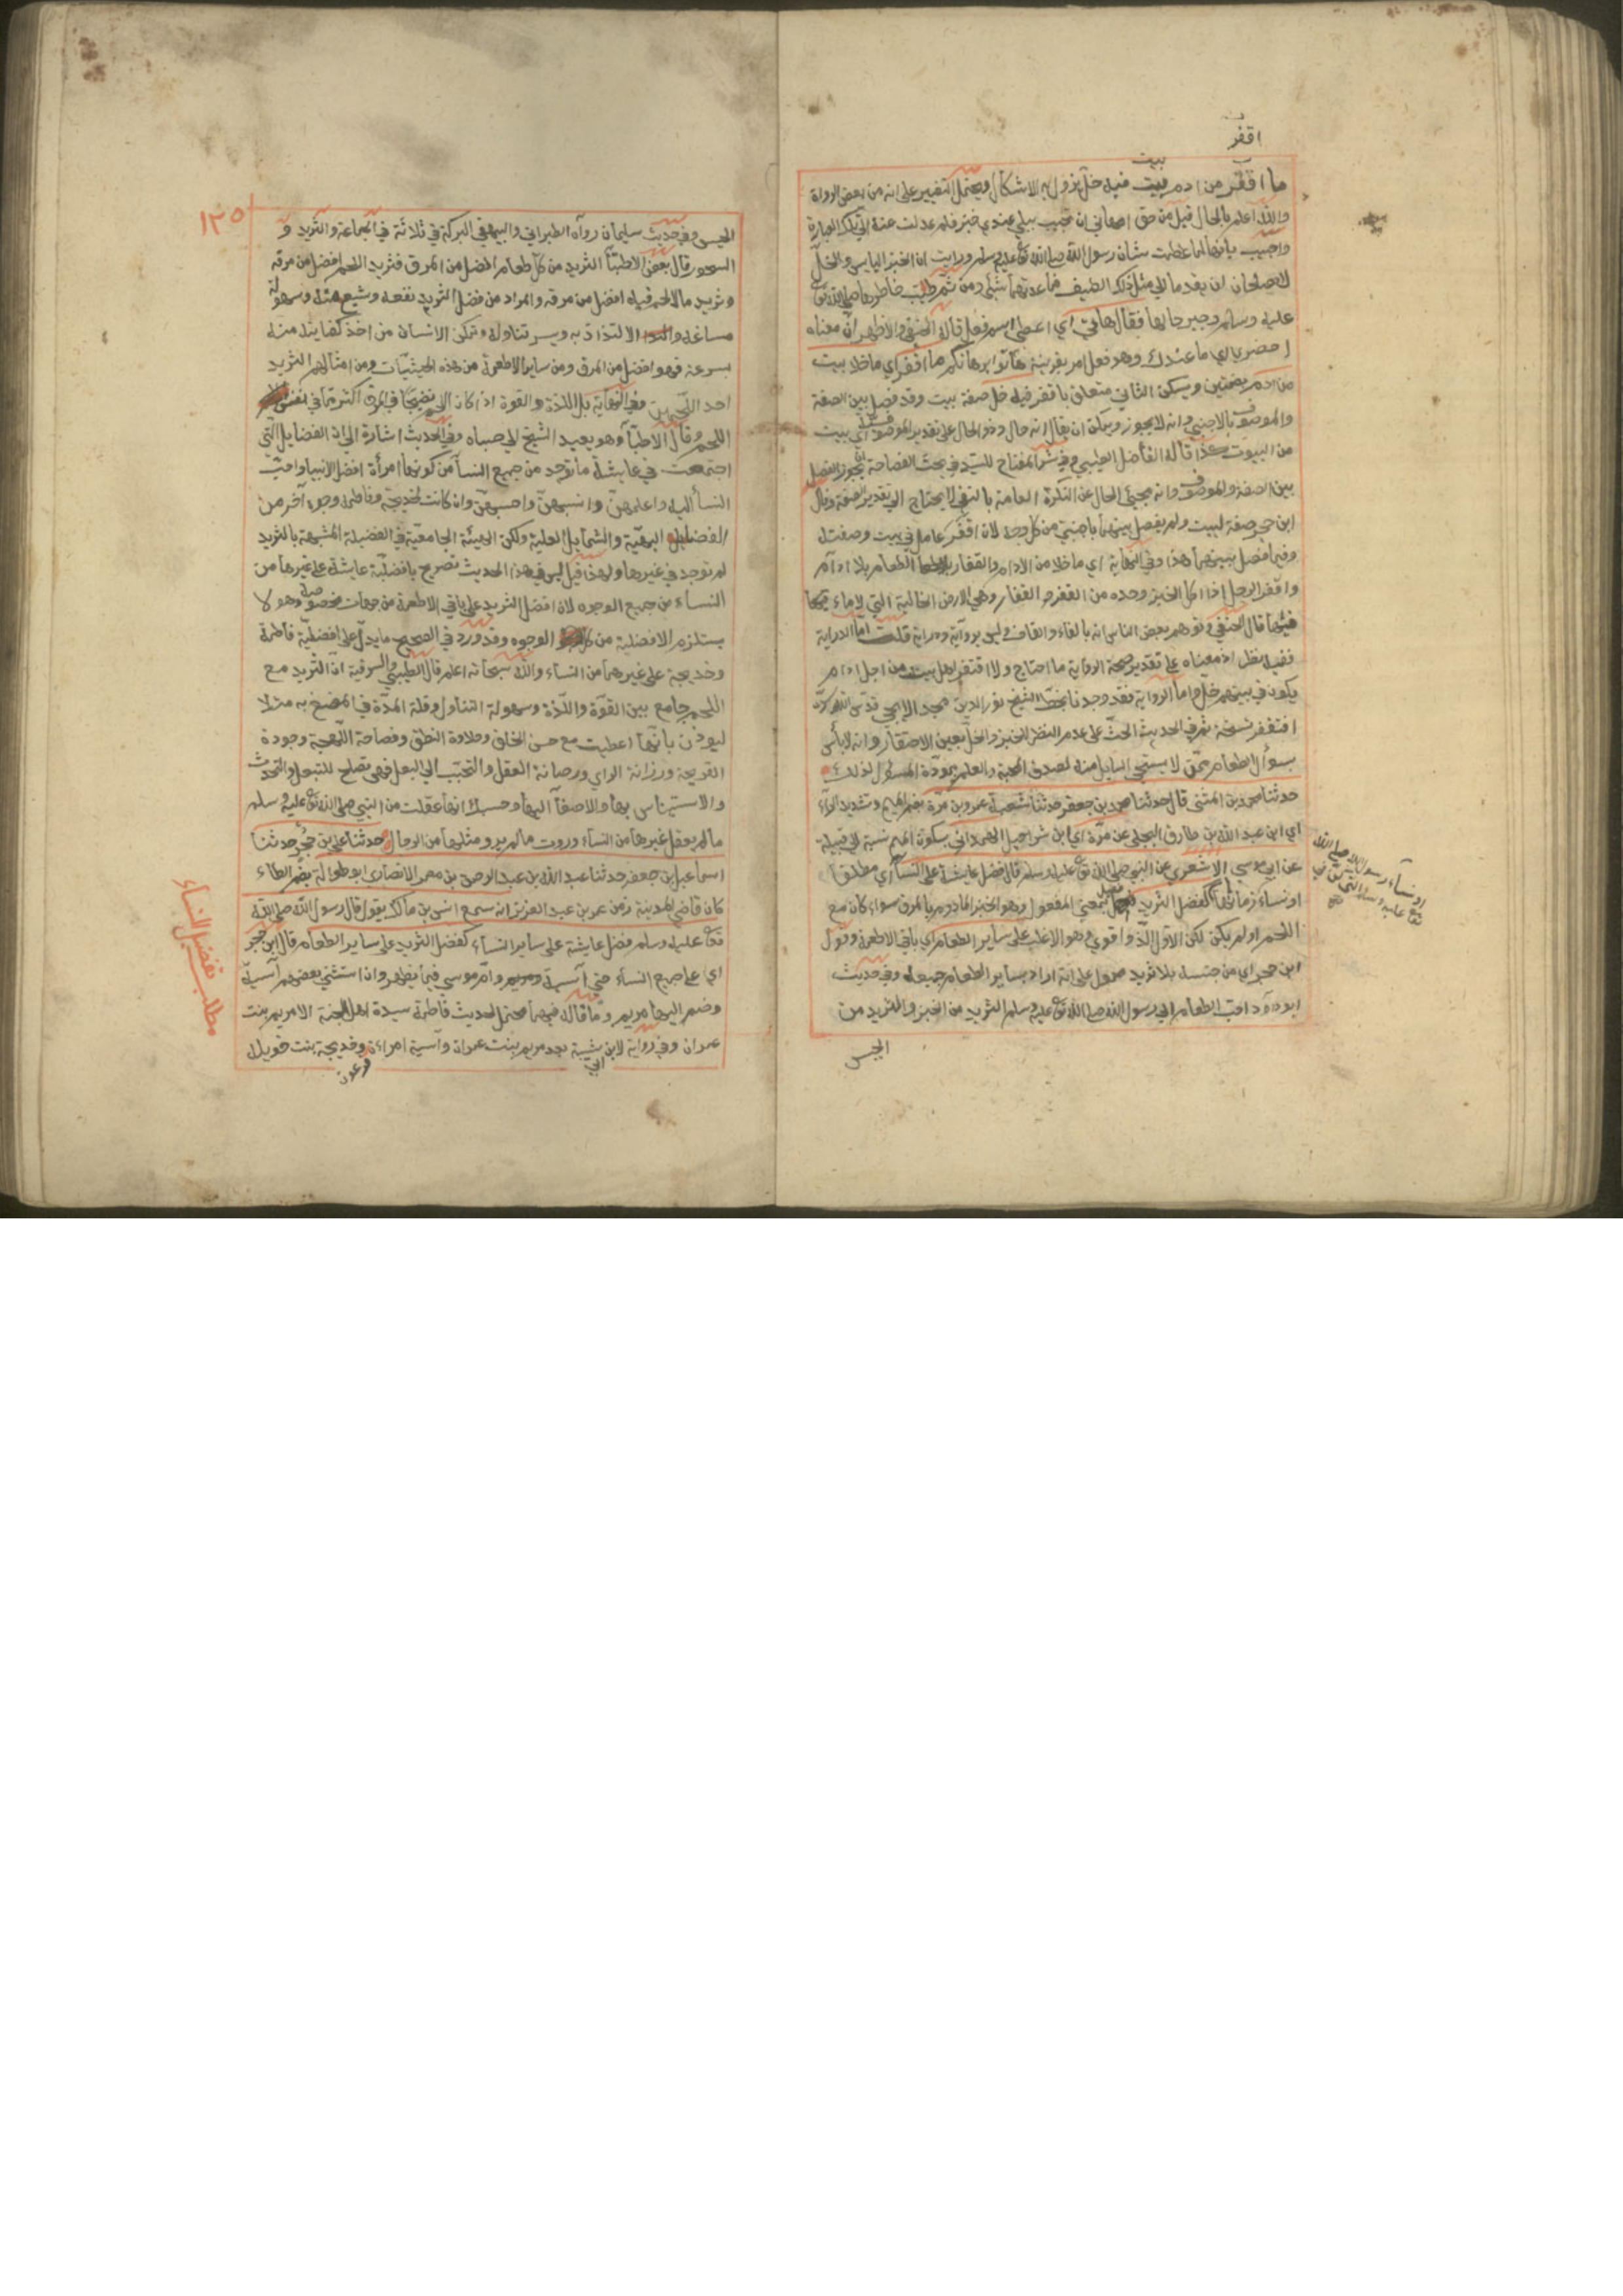 اقفر
ما اقفر من ادم بيت فيه خل يزول به الاشكال ويحتمل التغيير على انه من بعض الرواة
والله اعلم بالحال قيل من حق ام هاني ان تجيب ببلى عندي خبز فلم عدلت عنه الى تلك العبارة
واجيب بانها لما عظمت شان رسول الله صلى الله تع عليه وسلم ورايت ان الخبز اليابس والخل
لا يصلحان ان يقدما الى مثل ذلك الضيف فما عدتهما بشئ ومن ثم طيب خاطرها صلى الله تع
عليه وسلم وجبر حالها فقال هاتي اي اعطي اسم فعل قاله الحنفي والاظهر ان معناه
احضري اي ما عندك وهو فعل امر بقرينة هاتوا برهانكم ما اقفر اي ما خلا بيت
من ادم بضمتين ويسكن الثاني متعلق باقفر فيه خل صفة بيت وقد فصل بين الصفة
والموصوف بالاجنبي وانه لا يجوز ويمكن ان يقال انه حال وذو الحال على تقدير الموصوف اي بيت
من البيوت كذا قاله الفاضل الطيبي وفي شرح المفتاح للسيد في بحث الفصاحة انه يجوز الفصل
بين الصفة والموصوف وانه مجئ الحال عن النكرة العامة بالنفي لا يحتاج الى تقدير الصفة وقال
ابن حجر صفة لبيت ولم يفصل بينهما باجنبي من كل وجه لان اقفر عامل في بيت وصفته
وفيما فصل بينهما هذا وفي النهاية اي ما خلا من الادام والقفار الطعام بلا ادام
واقفر الرجل اذا اكل الخبز وحده من القفر والقفار وهي الارض الخالية التي لا ماء فيها
قال الحنفي وتوهم بعض الناس انه بالفاء والقاف وليس برواية ودراية قلت اما الدراية
ففيه نظر اذ معناه على تقدير صحة الرواية ما احتاج ولا افتقر اهل بيت من اجل ادام
يكون في بيتهم خل واما الرواية فقد وجدنا بخط الشيخ نور الدين محمد الايجي قدس الله سره
افتقر نسخة ثم في الحديث الحث على عدم النظر للخبز والخل بعين الاحتقار وانه لا بأس
بسؤال الطعام ممن لا يستحي السايل منه لصدق المحبة والعلم بمودة المسئول لذلك
حدثنا محمد بن المثنى قال حدثنا محمد بن جعفر حدثنا شعبة عن عمرو بن مرة بضم الميم وتشديد الراء
اي ابن عبد الله بن طارق البجلي عن مرة اي ابن شراحيل الهمداني بسكون الميم نسبة الى قبيلة
عن ابي موسى الاشعري عن النبي صلى الله تع عليه وسلم قال فضل عايشة على النساء اي مطلقا
او نساء زمانها كفضل الثريد فعيل بمعنى المفعول وهو الخبز المادوم بالمرق سواء كان مع
اللحم او لم يكن لكن الاول الذ واقوى وهو الاغلب على ساير الطعام اي باقي الاطعمة وقول
ابن حجر اي من جنسه بلا ثريد محمول على انه اراد بساير الطعام جميعه وفي حديث
ابو داود احب الطعام الى رسول الله صلى الله تع عليه وسلم الثريد من الخبز والثريد من
الحيس
او نساء رسول الله صلى الله
١٢٥
الحيس وفي حديث سليمان رواه الطبراني والبيهقي البركة في ثلاثة في الجماعة والثريد و
السحور وقال بعض الاطباء الثريد من كل طعام افضل من المرق فثريد اللحم افضل من مرقه
وثريد ما لا لحم فيه افضل من مرقه والمراد من فضل الثريد نفعه وشبع منه وسهولة
مساغه والالتذاذ به ويسر تناوله وتمكن الانسان من اخذ كفايته منه
بسرعة فهو افضل من المرق ومن ساير الاطعمة من هذه الحيثيات ومن امثالهم الثريد
احد اللحمين وفي النهاية بل اللذة والقوة اذا كان اللحم نضيجا في المرق اكثر مما في نفس
اللحم وقال الاطباء هو يعيد الشيخ الى صباه وفي الحديث اشارة الى ان الفضايل التي
اجتمعت في عايشة ما توجد من جميع النساء من كونها امرأة افضل الانبيا واحب
النسا اليه واعلمهن وانسبهن واحسبهن وان كانت لخديجة وفاطمة وجوه آخر من
الفضايل البهية والشمايل العلية ولكن الهيئة الجامعية في الفضيلة المشبهة بالثريد
لم توجد في غيرها ولهذا قيل ليس في هذا الحديث تصريح بافضلية عايشة على غيرها من
النساء من جميع الوجوه لان افضل الثريد على باقي الاطعمة من جهات مخصوصة وهو لا
يستلزم الافضلية من كل الوجوه وقد ورد في الصحيح ما يدل على افضلية فاطمة
وخديجة على غيرهما من النساء والله سبحانه اعلم قال الطيبي والسر فيه ان الثريد مع
اللحم جامع بين القوة واللذة وسهولة التناول وقلة المدة في المضغ به مثلا
ليوذن بانها اعطيت مع حسن الخلق وحلاوة النطق وفصاحة اللهجة وجودة
القريحة ورزانة الراي ورصانة العقل والتحبب الى البعل فهي تصلح للتبعل والتحدث
والاستيناس بها والاصغاء اليها وحسبك انها عقلت من النبي صلى الله تع عليه وسلم
ما لم يعقل غيرها من النساء وروت ما لم يرو مثلها من الرجال حدثنا علي بن حجر حدثنا
اسماعيل بن جعفر حدثنا عبد الله بن عبد الرحمن بن معمر الانصاري ابو طوالة بضم الطاء
كان قاضي المدينة زمن عمر بن عبد العزيز انه سمع انس بن مالك يقول قال رسول الله صلى الله
تع عليه وسلم فضل عايشة على ساير النساء كفضل الثريد على ساير الطعام قال ابن حجر
اي على جميع النساء حتى آسية ومريم وام موسى فيما يظهر وان استثنى بعضهم آسية
وضم اليها مريم وما قاله فيهما محتمل لحديث فاطمة سيدة اهل الجنة الا مريم بنت
عمران وفي رواية لابن ابي شيبة بعد مريم بنت عمران وآسية امراءة فرعون وخديجة بنت خويلد
مطلب تفضيل النساء